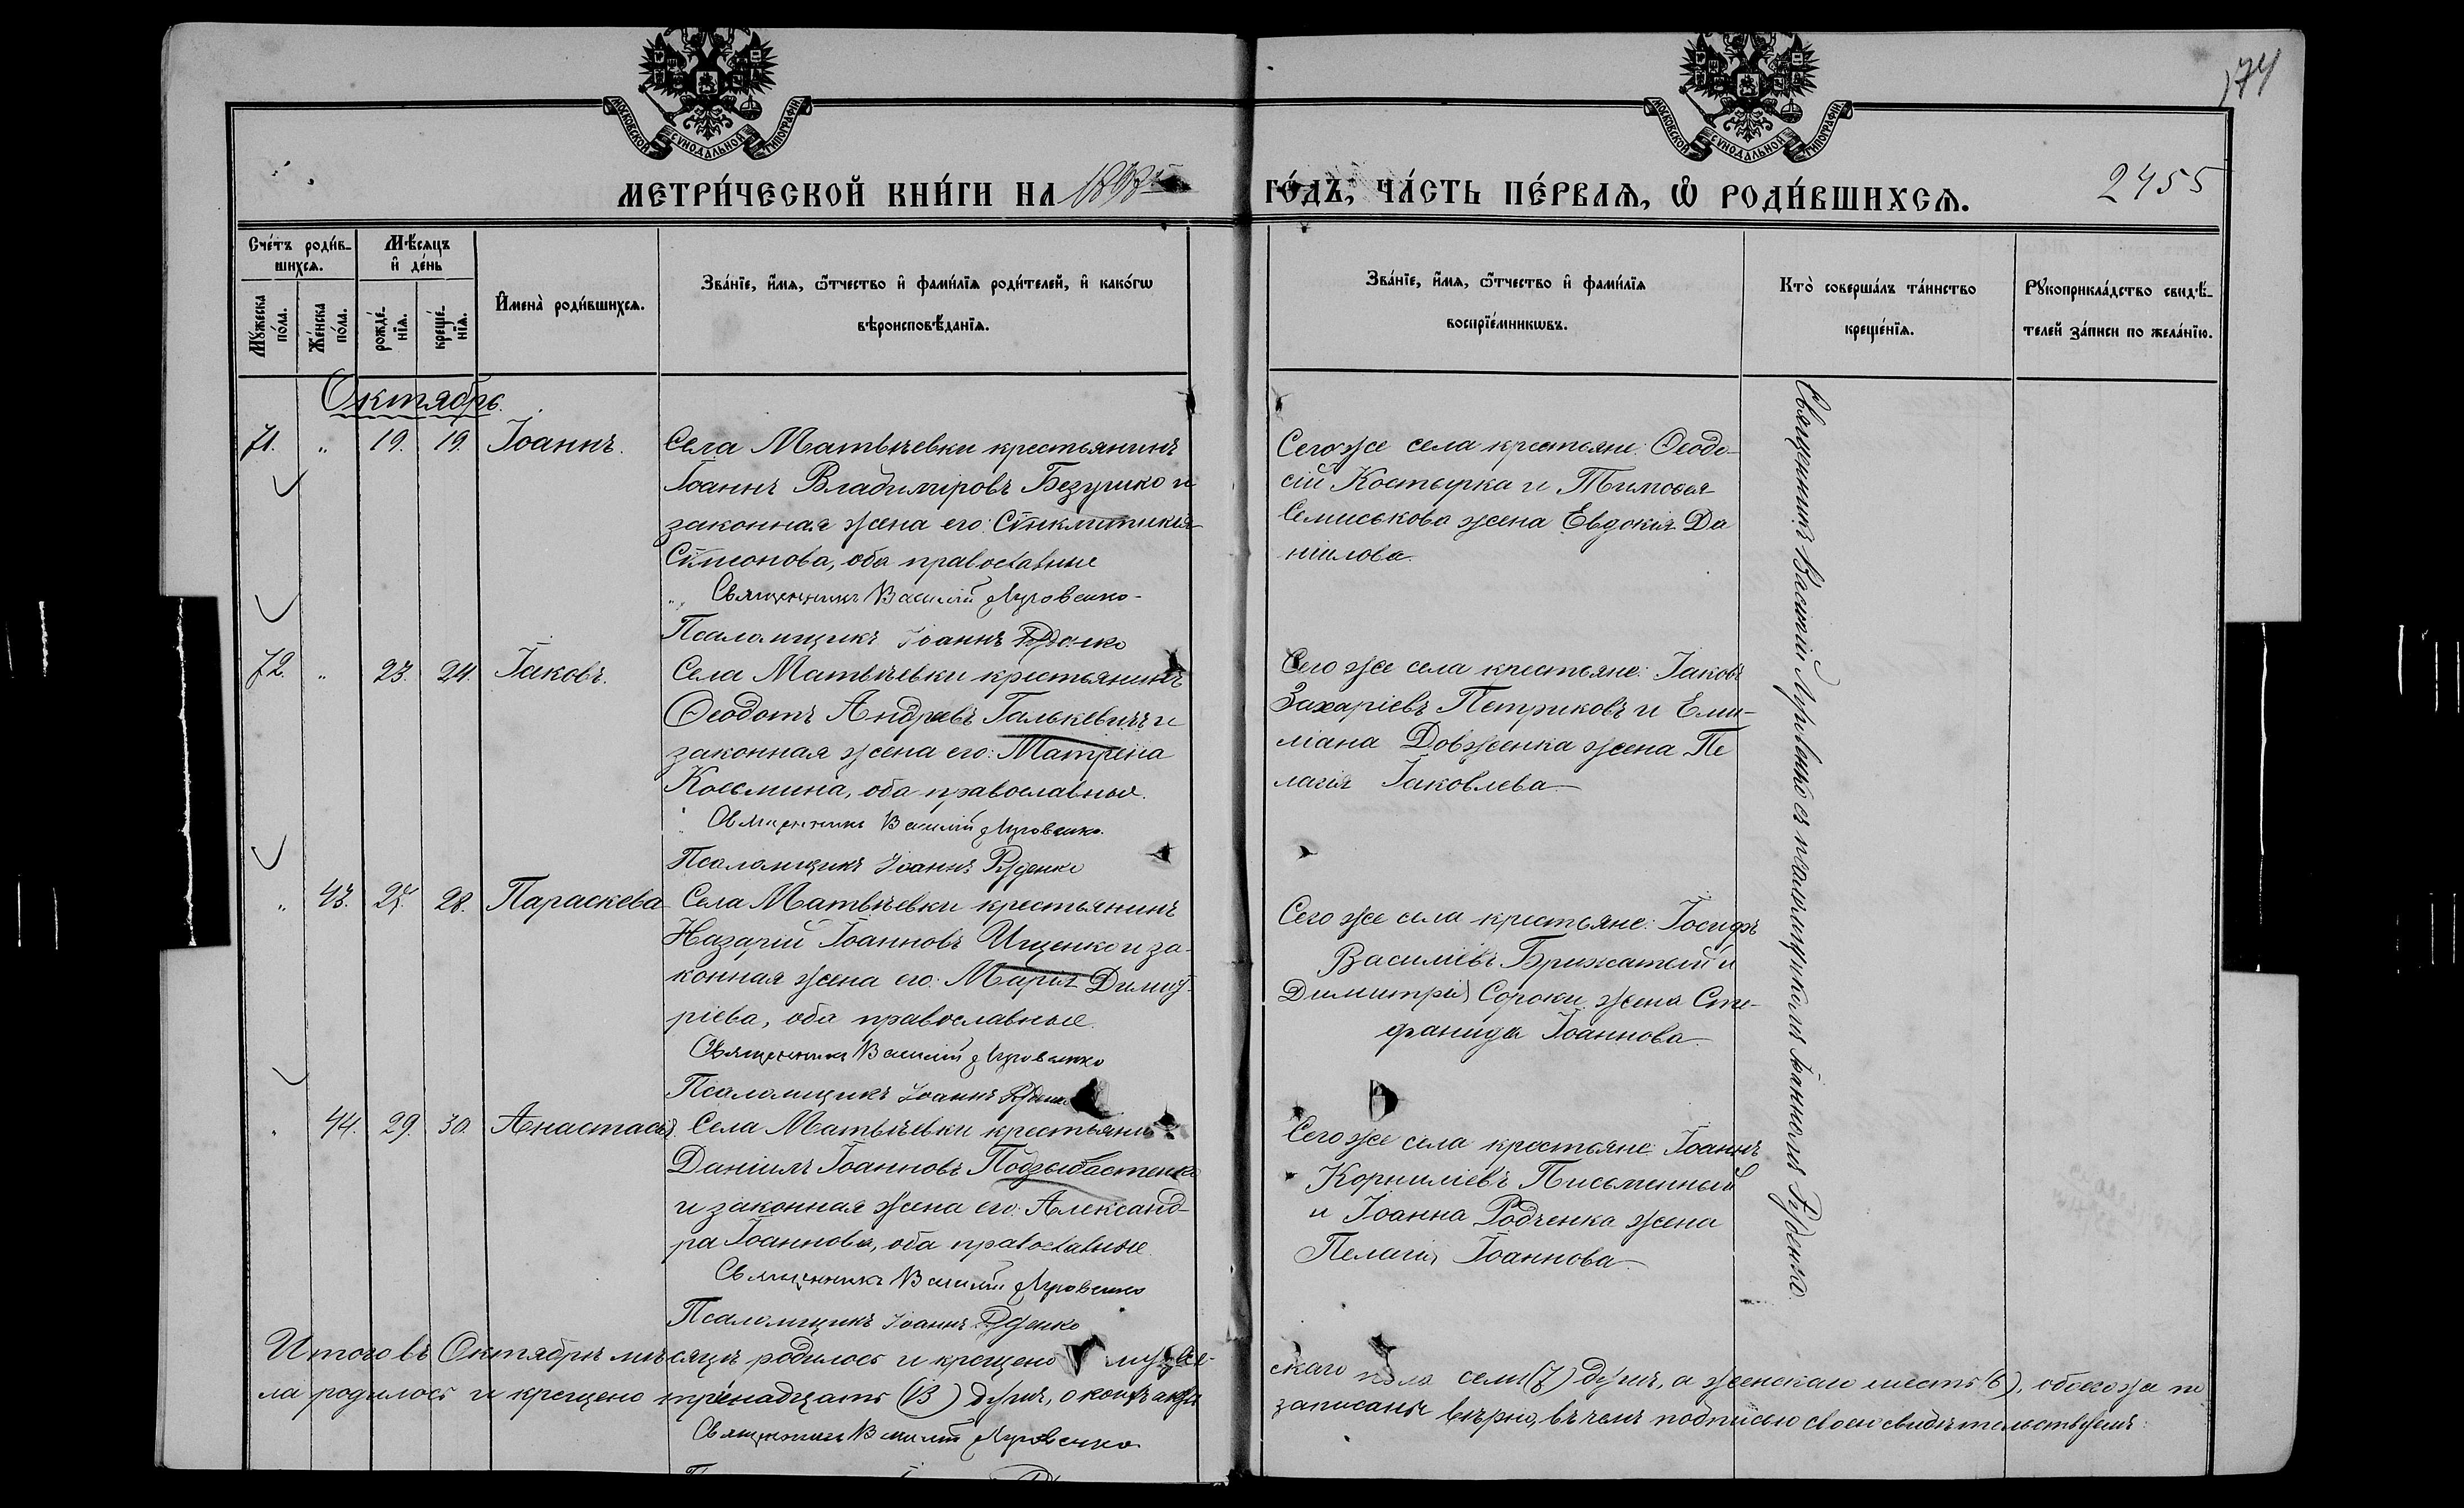 МОСКОВСКОЙ СУНОДАЛЬНОЙ ТИПОГРАФІИ
МОСКОВСКОЙ СУНОДАЛЬНОЙ ТИПОГРАФІИ
174
МЕТРИ́ЧЕСКОЙ КНИ́ГИ НА
ГО́ДЪ, ЧА́СТЬ ПЕ́РВАѦ, Ѿ РОДИ́ВШИХСѦ.
2455
Сче́тъ роди́в-
шихсѧ.
Мꙋ́жеска по́ла.
Же́нска по́ла.
Мѣ́сѧцъ
и҆ де́нь
рожде́-нїѧ.
креще́-нїѧ.
И҆мена̀ роди́вшихсѧ.
Зва́нїе, и҆́мѧ, ѻ҆́тчество и҆ фами́лїѧ роди́телей, и҆ како́гѡ
вѣроисповѣ́данїѧ.
Зва́нїе, и҆́мѧ, ѻ҆́тчество и҆ фами́лїѧ
воспрїе́мникѡвъ.
Кто̀ соверша́лъ та́инство
креще́нїѧ.
Рꙋкоприкла́дство свидѣ́-
телей за́писи по жела́нїю.
Октябрь.
71. " 19. 19. Іоаннъ.
Села Матвѣевки крестьянинъ
Іоаннъ Владиміровъ Безушко и
законная жена его: Сѵнклитикія
Сѵмеонова, оба православные
Священникъ Василій Луговенко
Псаломщикъ Іоаннъ Руденко
Сего же села крестьяне: Ѳеодо-
сій Костырка и Тимоѳея
Семиськова жена Евдокія Да
ніилова.
72. " 23. 24. Іаковъ.
Села Матвѣевки крестьянинъ
Ѳеодотъ Андреевъ Галькевичъ и
законная жена его: Матрена
Косьмина, оба православные.
Священникъ Василій Луговенко
Псаломщикъ Іоаннъ Руденко
Сего же села крестьяне: Іаковъ
Захаріевъ Петриковъ и Еми-
ліана Довженка жена Пе
лагія Іаковлева
" 43. 28. Параскева
Села Матвѣевки крестьянинъ
Назарій Іоанновъ Ищенко и за-
конная жена его: Марія Димит-
ріева, оба православные.
Священникъ Василій Луговенко
Псаломщикъ Іоаннъ Руденко
Сего же села крестьяне: Іосифъ
Василіевъ Брижатый и
Димитрія Сороки жена Сте-
фанида Іоаннова
" 44. 29. 30. Анастасія
Села Матвѣевки крестьянинъ
Даніилъ Іоанновъ
и законная жена его: Александ-
ра Іоаннова, оба православные.
Священникъ Василій Луговенко
Псаломщикъ Іоаннъ Руденко
Сего же села крестьяне: Іоаннъ
Корниліевъ Письменный
и Іоанна Родченка жена
Пелагія Іоаннова
Священникъ Василій Луговенко съ псаломщикомъ Іоанномъ Руденко
Итого въ Октябрѣ мѣсяцѣ родилось и крещено муже-
скаго пола семь (7) душъ, а женскаго шесть (6), обоего же по
ла родилось и крещено тринадцать (13) душъ,
записаны вѣрно, въ чемъ подписью своею свидѣтельствуемъ:
Священникъ Василій Луговенко